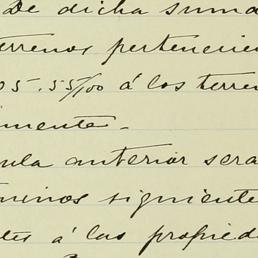 De dicha suma
terrenos pertenecien
05.55/100 á los terren
imente.-
ula anterior sera
minos siguiente
tes á las propieda